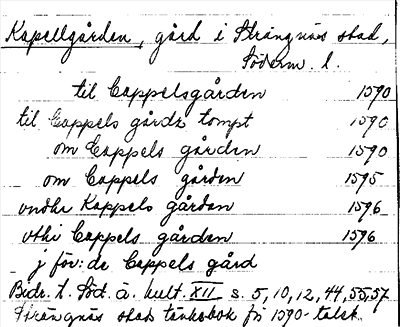 Kapellgården, gård i Strängnäs stad,
Söderm. l.
til Cappelsgården 1590
til Cappels gårdz tompt 1590
om Cappels gården 1590
om Cappels gården 1595
vndhr Kappels gården 1596
vthi Cappels gården 1596
j för: de Cappels gård
Bidr. t. Söd. ä. kult. XII s. 5, 10, 12, 44, 55, 57
Strängnäs stads tänkebok fr 1590-talet.